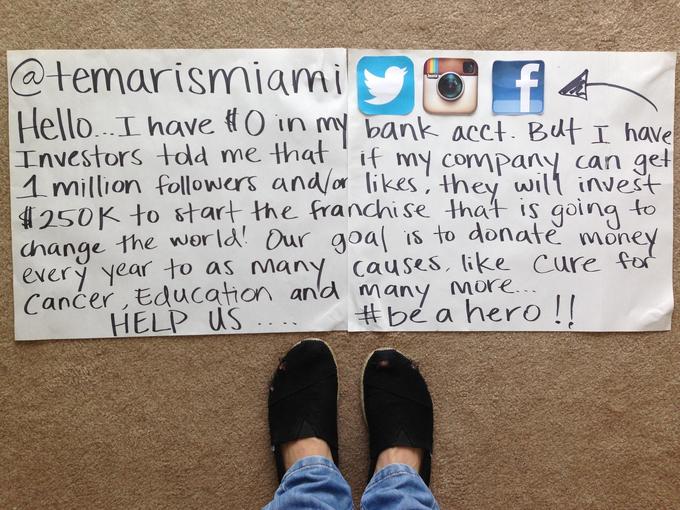 @temarismiami
Hello...I have $0 in my bank acct. But I have
Investors told me that if my company can get
1 million followers and/or likes, they will invest
$250K to start the franchise that is going to
change the world! Our goal is to donate money
every year to as many causes, like Cure for
Cancer, Education and many more...
HELP US .... #be a hero!!